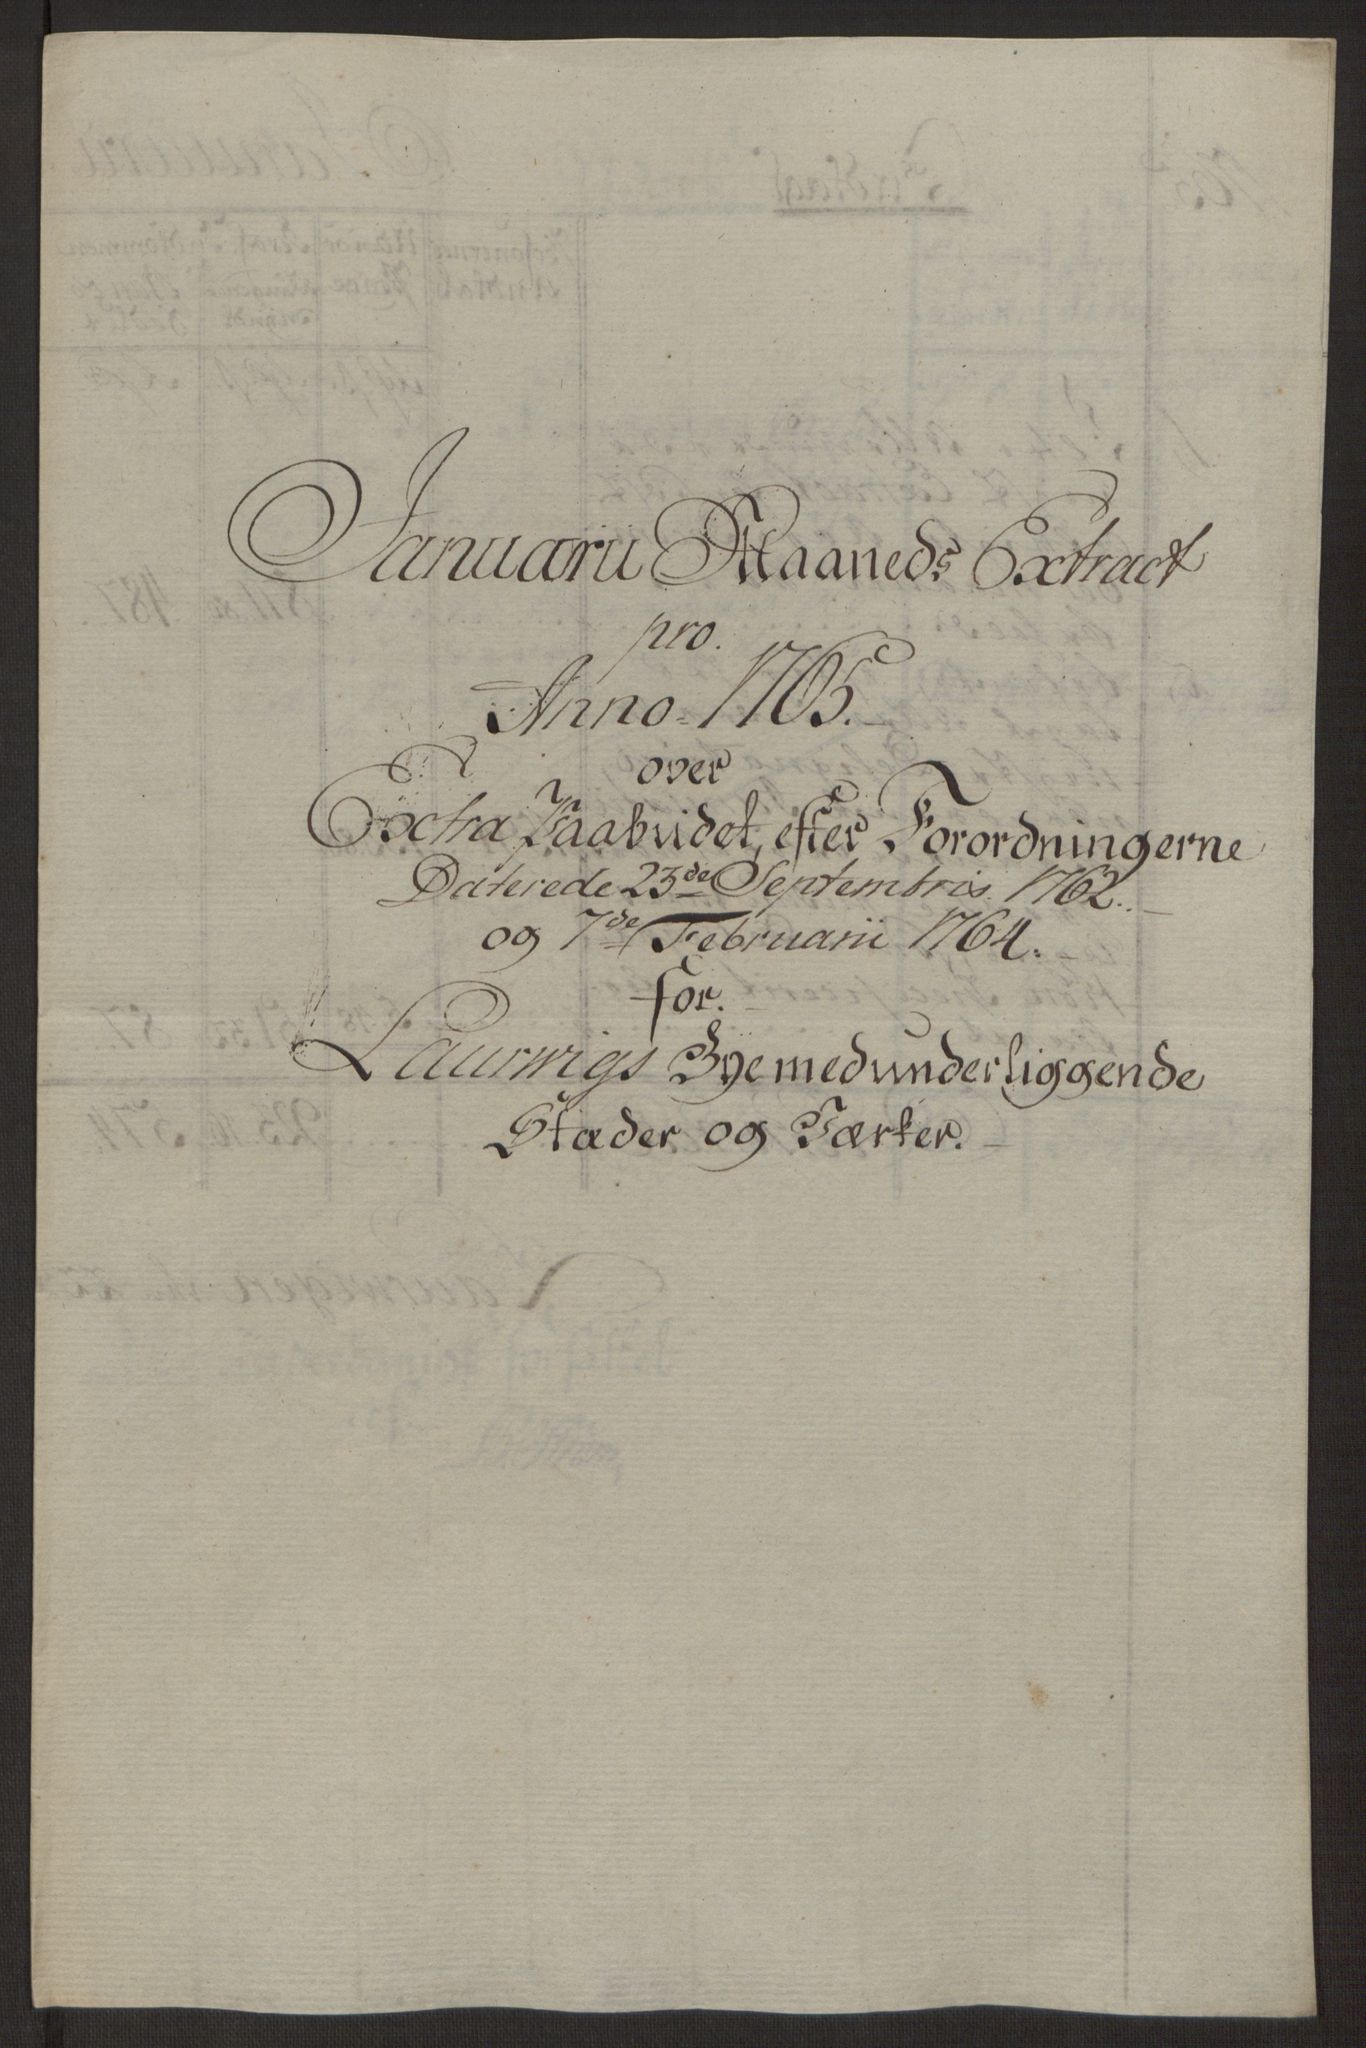 Januarii Maaneds Extract
pro.
Anno 1765.
over
Extra Paabudet, efter Forordningerne
Daterede 23de Septembris 1762.
og 7de Februarii 1764.
for.
Laurwigs Bye med underliggende
Stæder og Tærter.